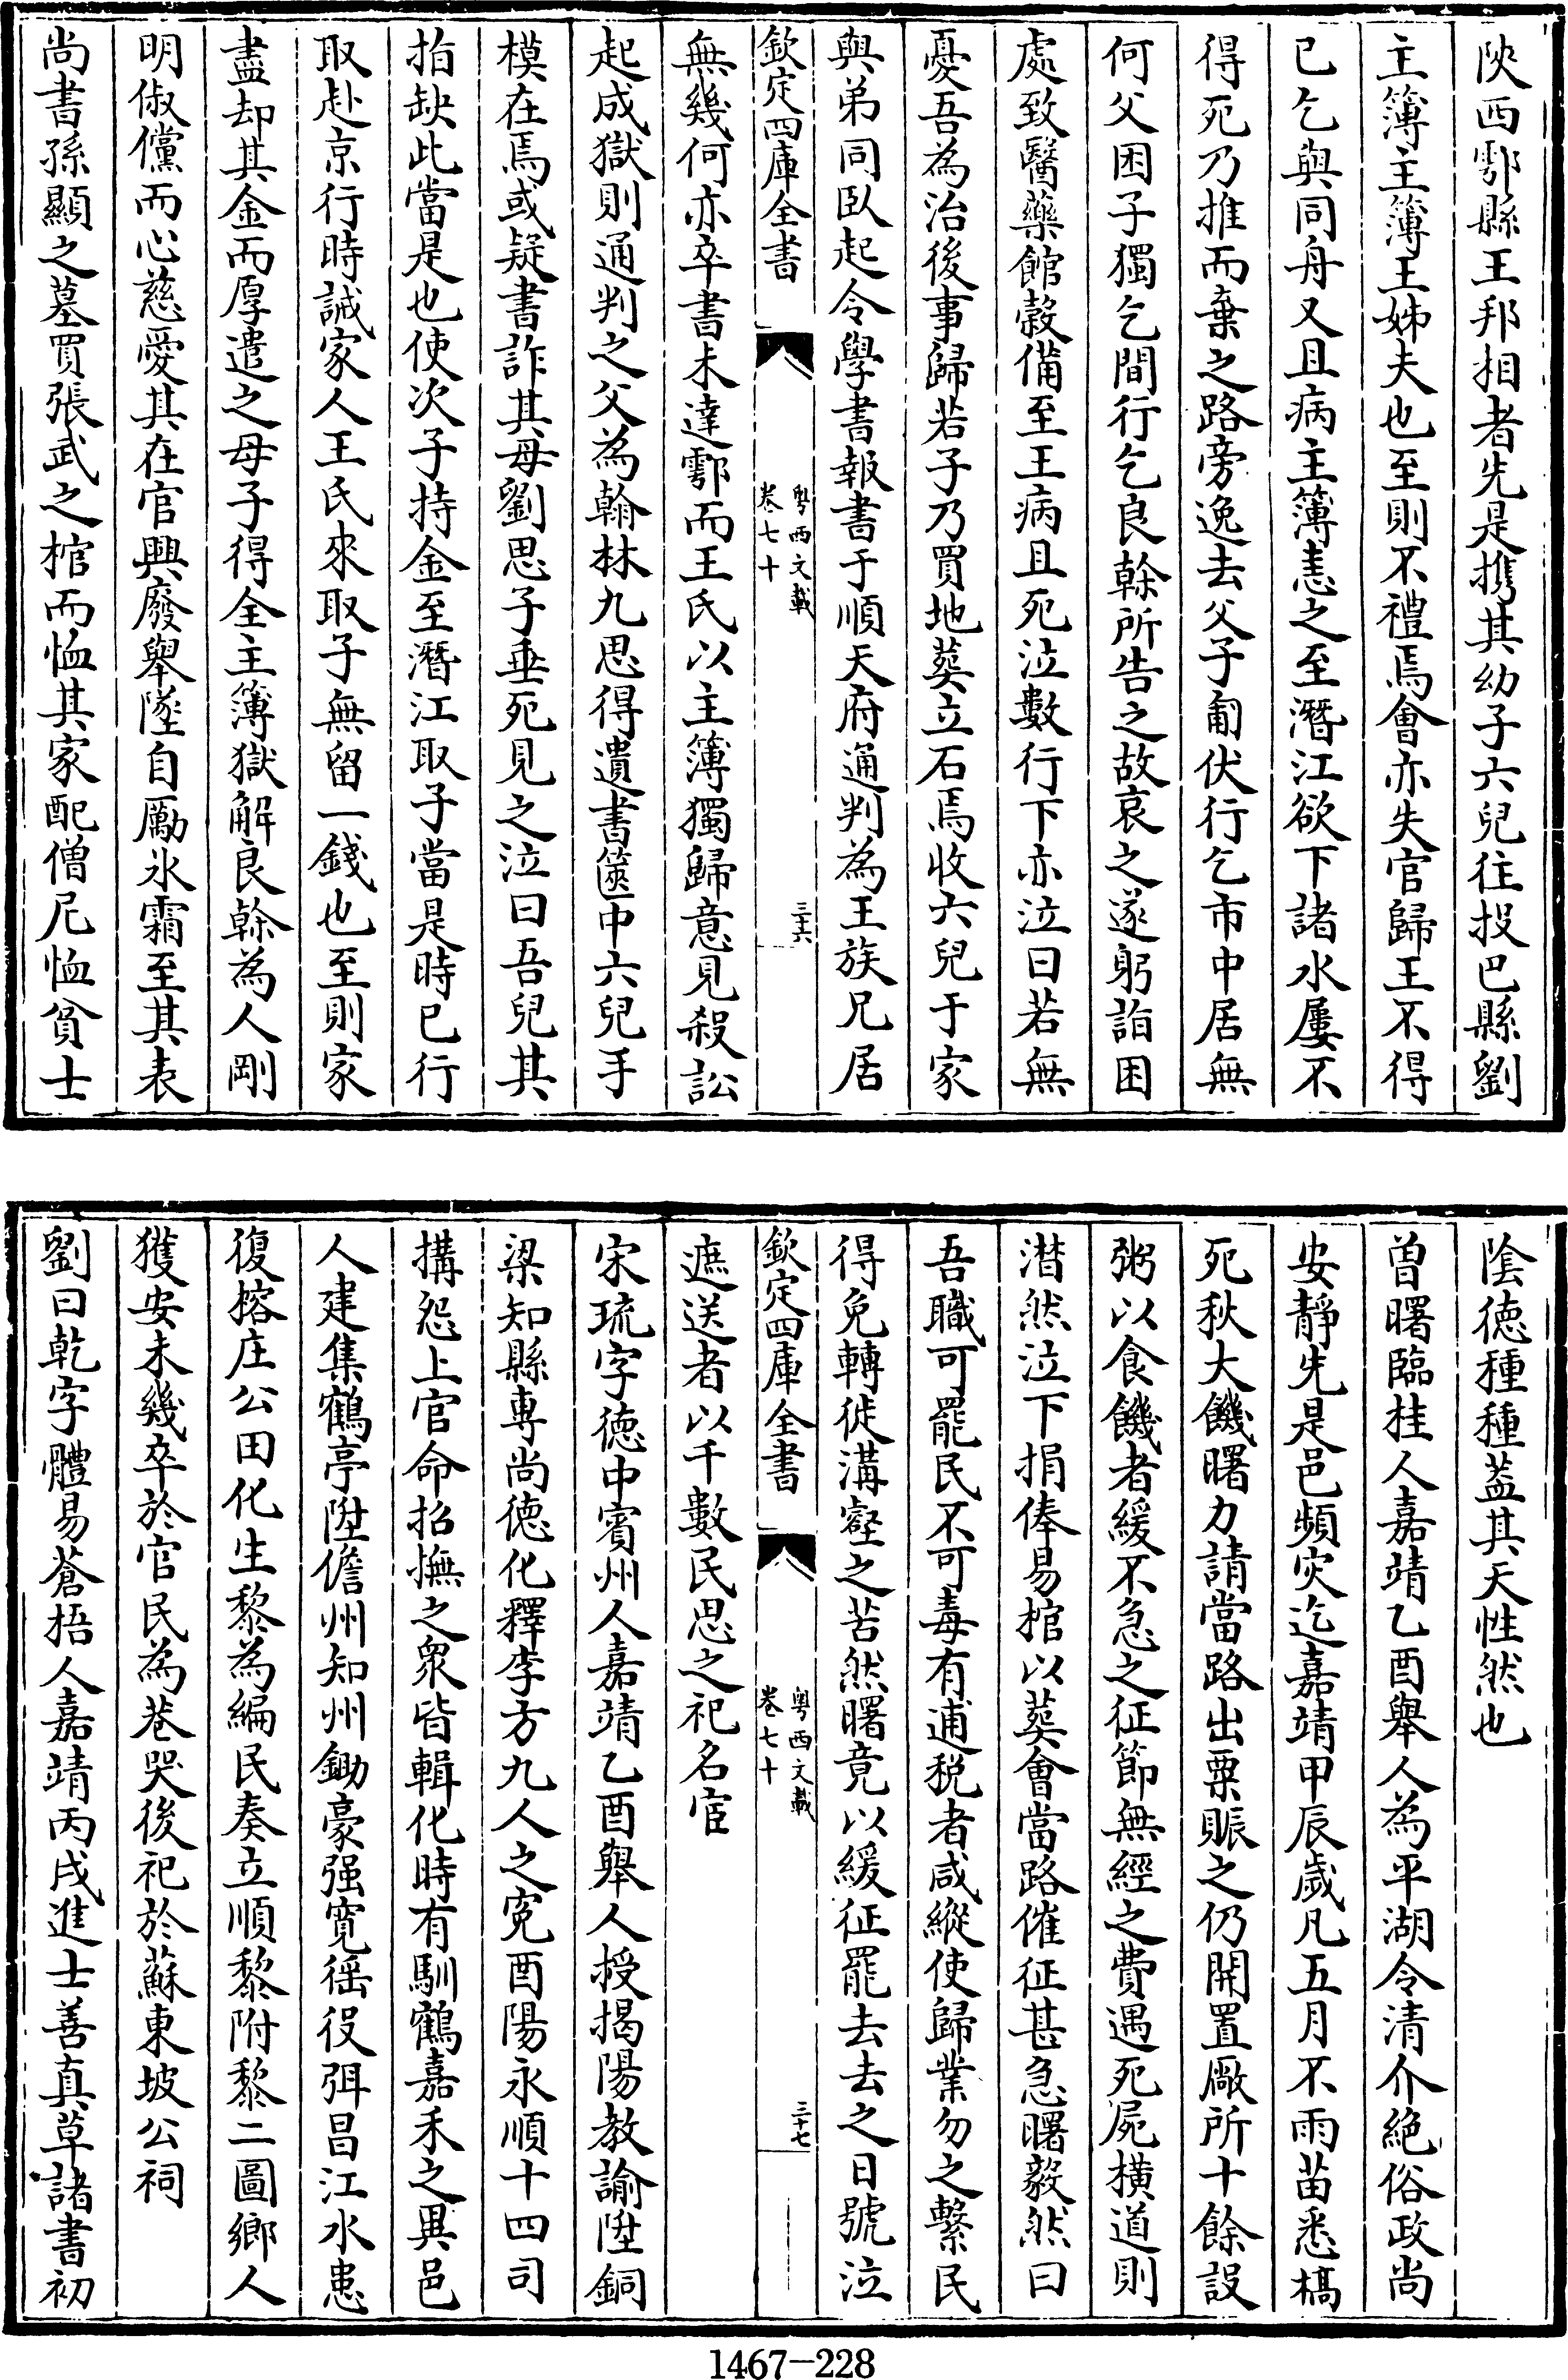 陜西鄠縣王邦相者先是携其幼子六兒往投巴縣劉
主簿主簿王姊夫也至則不禮焉會亦失官歸王不得
已乞與同舟又且病主簿恚之至潛江欲下諸水屢不
得死乃推而棄之路旁逸去父子匍伏行乞市中居無
何父困子獨乞間行乞良榦所告之故哀之遂躬詣困
處致醫藥館穀備至王病且死泣數行下亦泣曰若無
憂吾為治後事歸若子乃買地葬立石焉收六兒于家
與弟同臥起令學書報書于順天府通判為王族兄居
欽定四庫全書
粤西文載
卷七十
三十六
無幾何亦卒書未達鄠而王氏以主簿獨歸意見殺訟
起成獄則通判之父為翰林九思得遺書篋中六兒手
模在焉或疑書詐其母劉思子垂死見之泣曰吾兒其
指缺此當是也使次子持金至潛江取子當是時已行
取赴京行時誡家人王氏來取子無留一錢也至則家
盡却其金而厚遣之母子得全主簿獄解良榦為人剛
明俶儻而心慈愛其在官興廢舉墜自勵氷霜至其表
尚書孫顯之墓買張武之棺而恤其家配僧尼恤貧士
陰德種種葢其天性然也
曾曙臨桂人嘉靖乙酉舉人為平湖令清介絶俗政尚
安靜先是邑頻灾迄嘉靖甲辰歲凡五月不雨苗悉槁
死秋大饑曙力請當路出粟賑之仍開置厰所十餘設
粥以食饑者緩不急之征節無經之費遇死屍横道則
潸然泣下捐俸易棺以葬會當路催征甚急曙毅然曰
吾職可罷民不可毒有逋税者咸縱使歸業勿之繫民
得免轉徙溝壑之苦然曙竟以緩征罷去去之日號泣
欽定四庫全書
粤西文載
卷七十
三十七
遮送者以千數民思之祀名宦
宋琉字德中賓州人嘉靖乙酉舉人授揭陽教諭陞銅
梁知縣専尚德化釋李方九人之寃酉陽永順十四司
搆怨上官命招撫之衆皆輯化時有馴鶴嘉禾之異邑
人建集鶴亭陞儋州知州鋤豪强寛徭役弭昌江水患
復榕庄公田化生黎為編民奏立順黎附黎二圖鄉人
獲安未幾卒於官民為巷哭後祀於蘇東坡公祠
劉曰乾字體易蒼梧人嘉靖丙戌進士善真草諸書初
1467-228